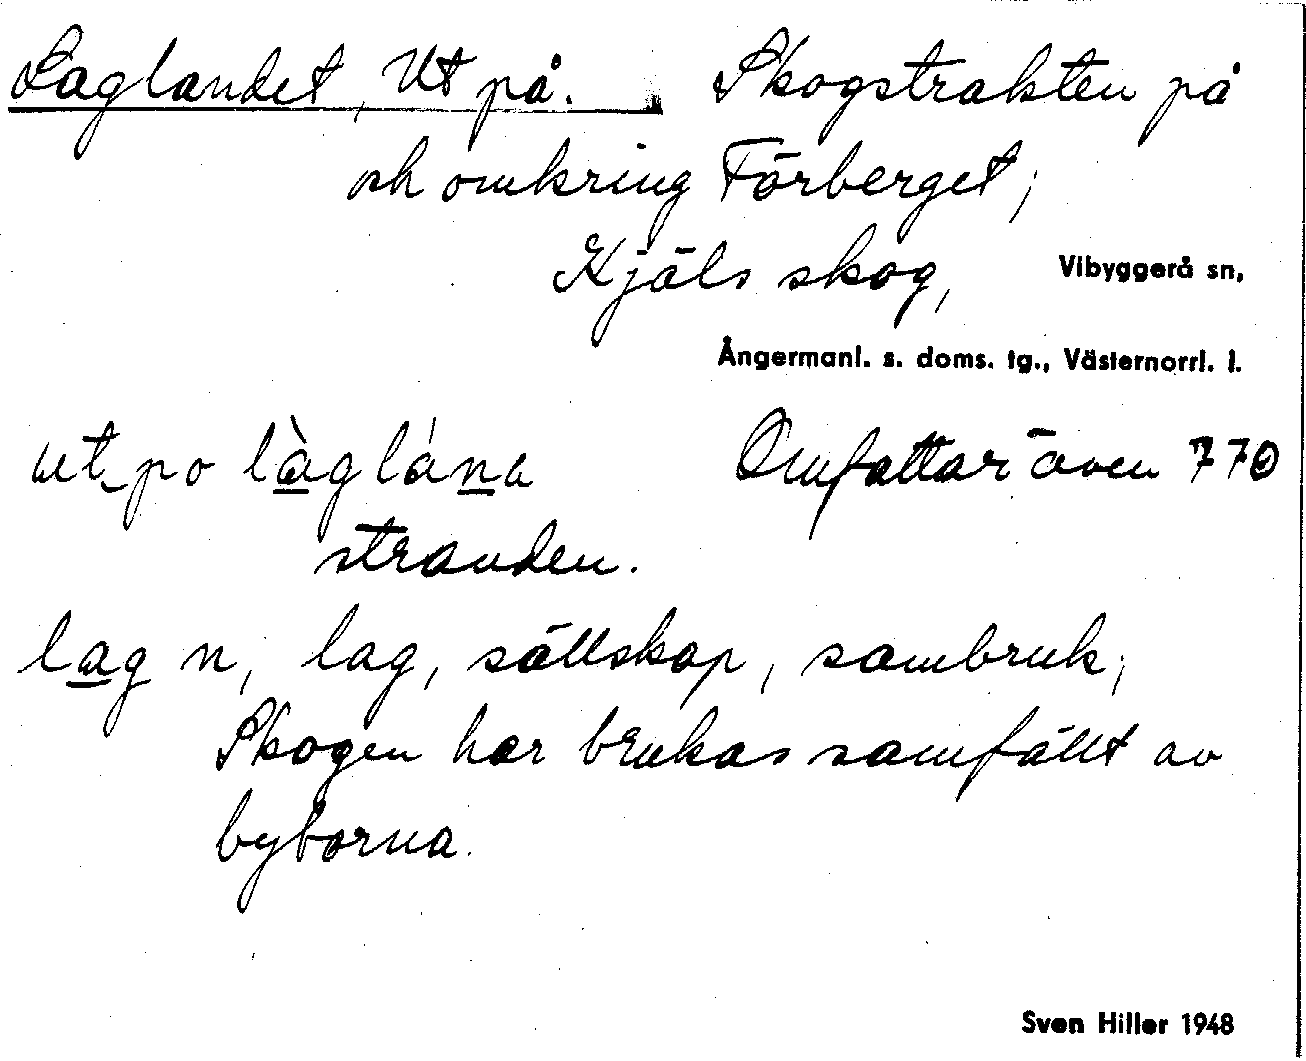 Laglandet, Ut på. Skogstrakten på
och omkring Förberget;
Kjäls skog, Vibyggerå sn,
Ångermanl. s. doms. tg., Västernorrl. l.
ut po làglána Omfattar även 770
stranden.
lag n, lag, sällskap, sambruk;
Skogen har brukas samfällt av
byborna.
Sven Hiller 1948